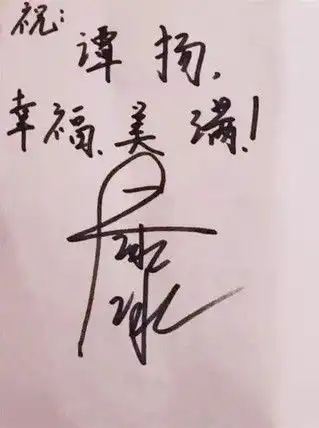 祝:
谭扬,
幸福、美满!